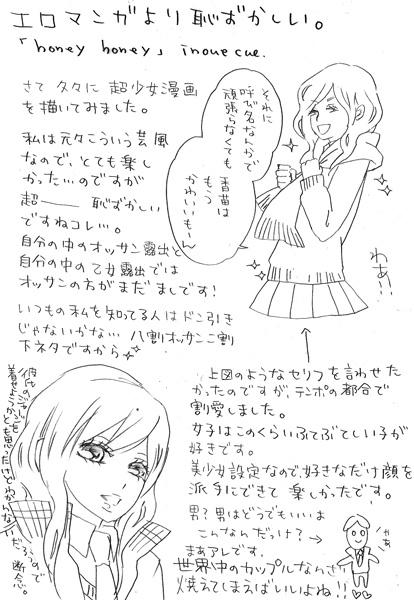 エロマンガより恥ずかしい。
「honey honey」 inoue cue.
さて 久々に 超少女漫画
を描いてみました。
私は元々こういう芸風
なので、とても楽し
かった…のですが
超―― 恥ずかしい
ですねコレ…。
自分の中のオッサン露出と
自分の中の乙女露出では
オッサンの方がまだましです!
いつもの私を知ってる人はドン引き
じゃないかな… 八割オッサン二割
下ネタですから
それに
呼び名なんかで
頑張らなくても
香苗は
もう
かわいいもーん
わあ!!
上図のようなセリフを言わせた
かったのですが、テンポの都合で
割愛しました。
女子はこのくらいふてぶてしい子が
好きです。
美少女設定なので、好きなだけ顔を
派手にできて 楽しかったです。
男?男はどうでもいいよ
こんなんだっけ?→
まあアレです。
やあ
世界中のカップルなんざ
焼えてしまえばいいよね!!
だろうので
断念。